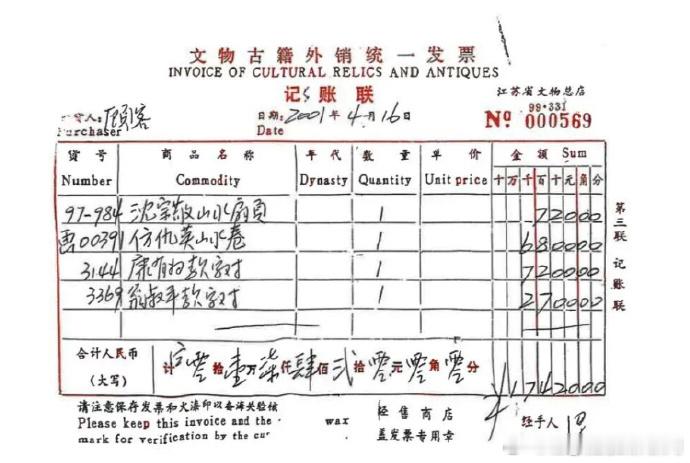 文物古籍外销统一发票
INVOICE OF CULTURAL RELICS AND ANTIQUES
记账联
江苏省文物总店
人: 顾客
Purchaser
日期: 2001年4月16日
Date
99·331
Nº 000569
货号 商品名称 年代 数量 单价 金额 Sum
Number Commodity Dynasty Quantity Unit price 十万千百十元角分
97-984 沈宗敬山水扇页 1 72000
曹00391 仿仇英山水卷 1 680000
3144 康有为款字对 1 720000
3369 翁叔平款字对 1 270000
合计人民币
(大写)
计 零拾壹万柒仟肆佰贰拾零元零角零分 ¥1742000
第三联 记账联
请注意保存发票和火漆印以备海关验核
Please keep this invoice and the wax
mark for verification by the cu
经售商店
盖发票专用章
经手人